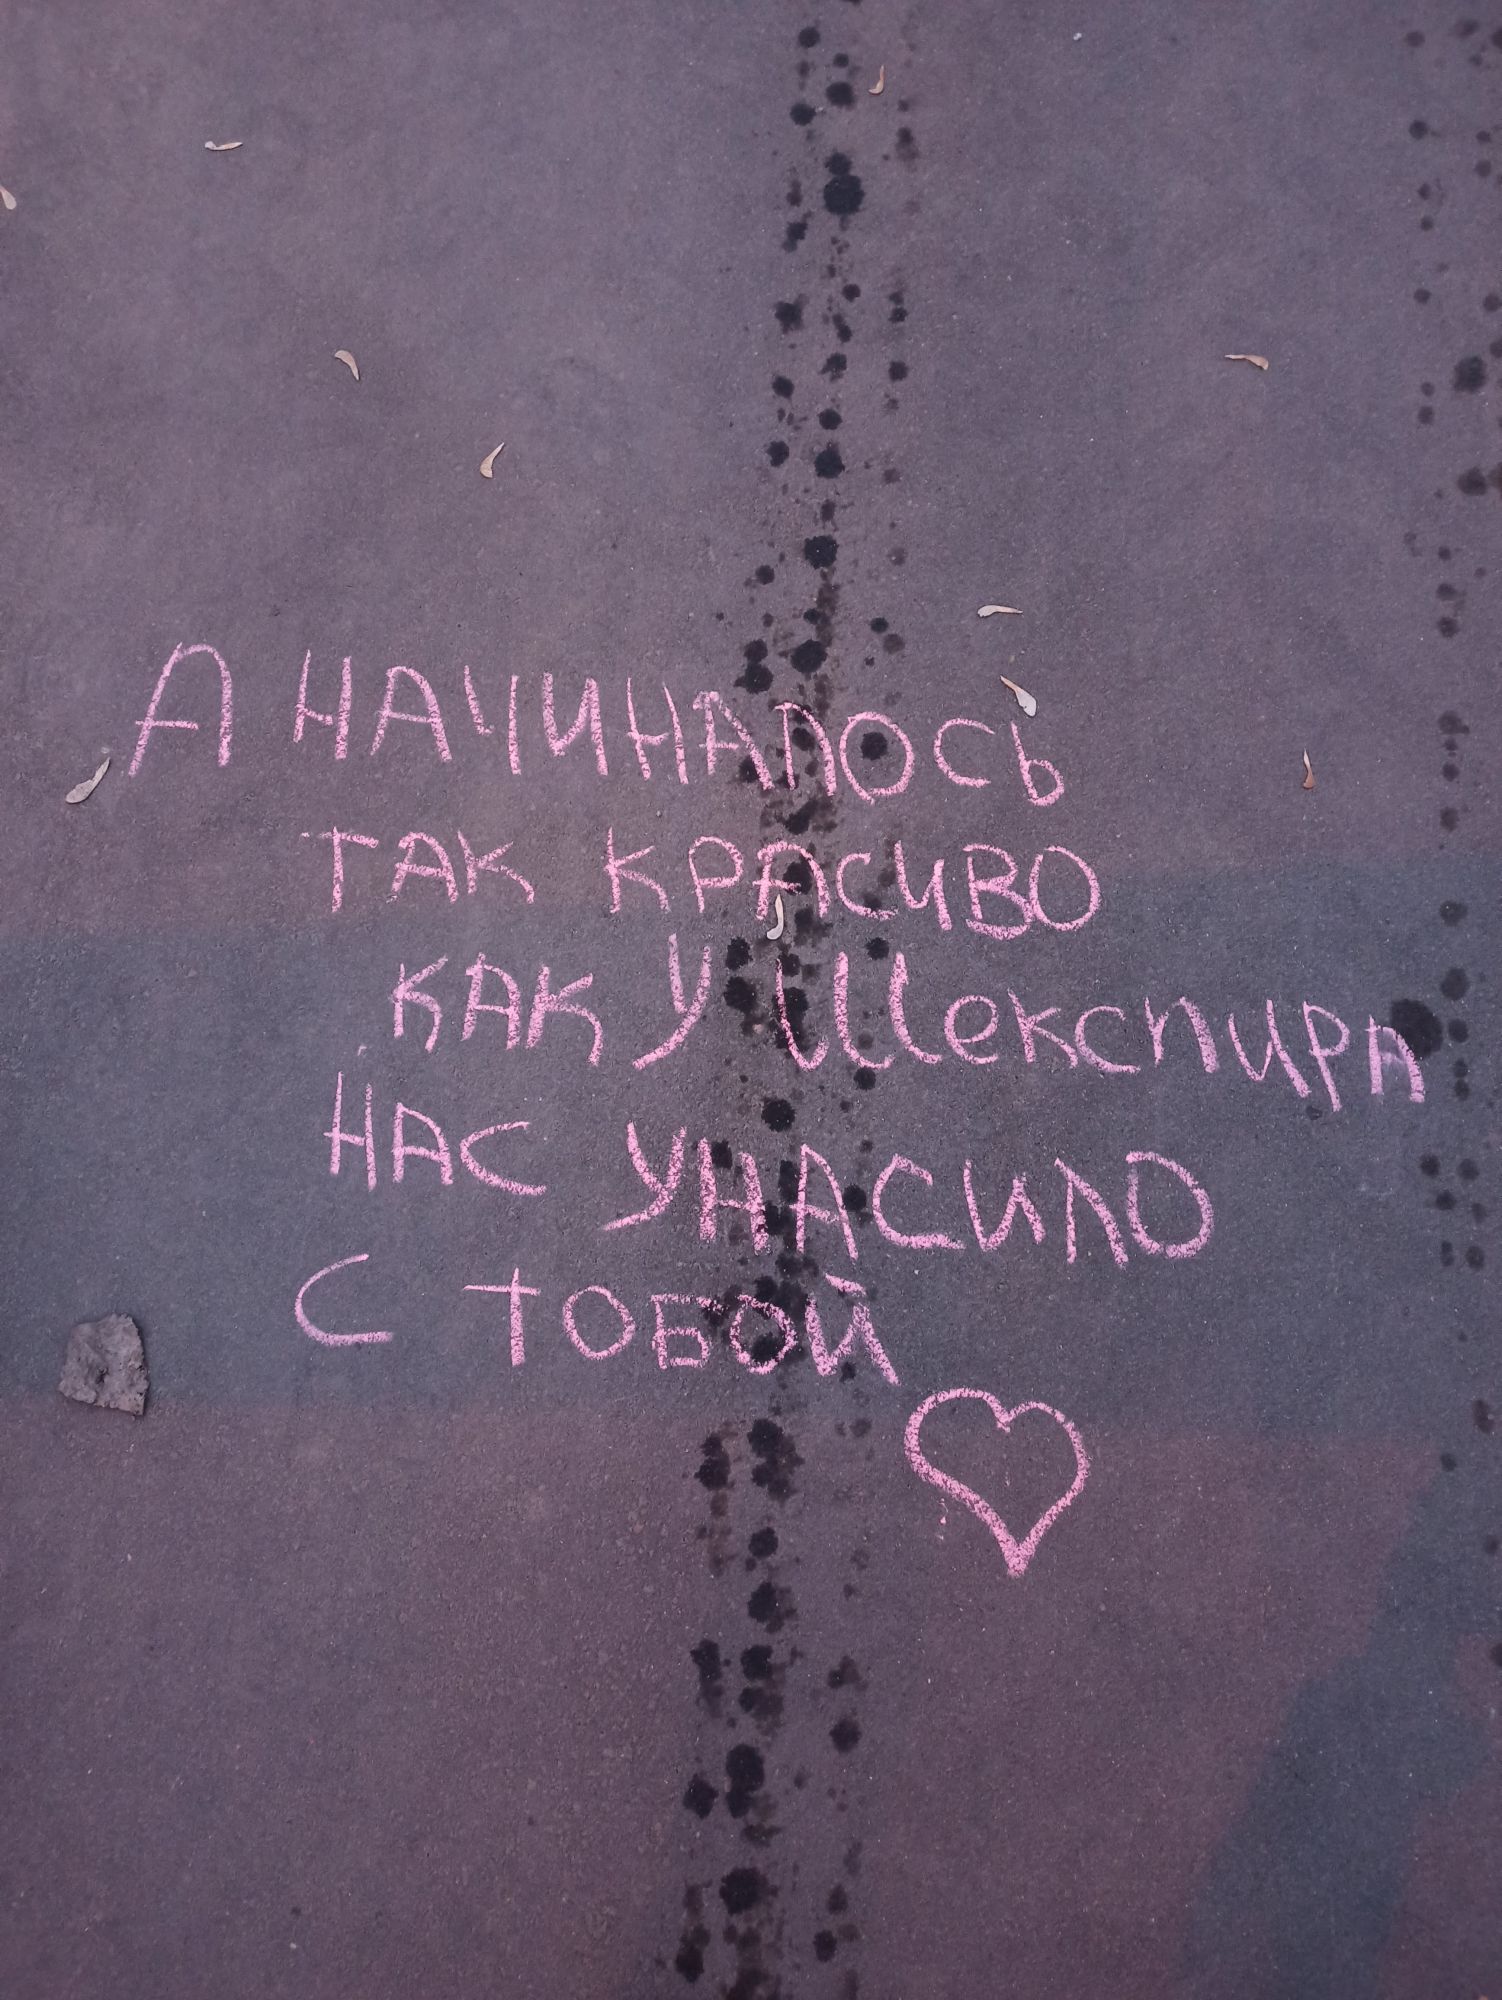 А НАЧИНАЛОСЬ
ТАК КРАСИВО
КАК У Шекспира
НАС УНАСИЛО
С ТОБОЙ